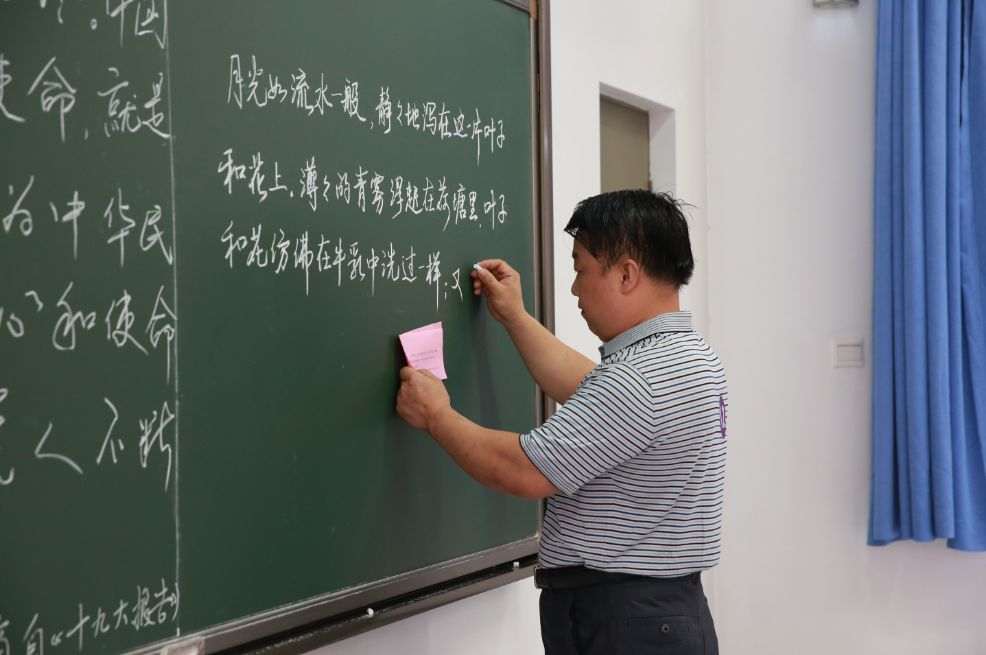 。中国
使命,就是
为中华民
和使命
人不断
自《十九大报告》
月光如流水一般,静々地泻在这一片叶子
和花上。薄々的青雾浮起在荷塘里。叶子
和花仿佛在牛乳中洗过一样;又